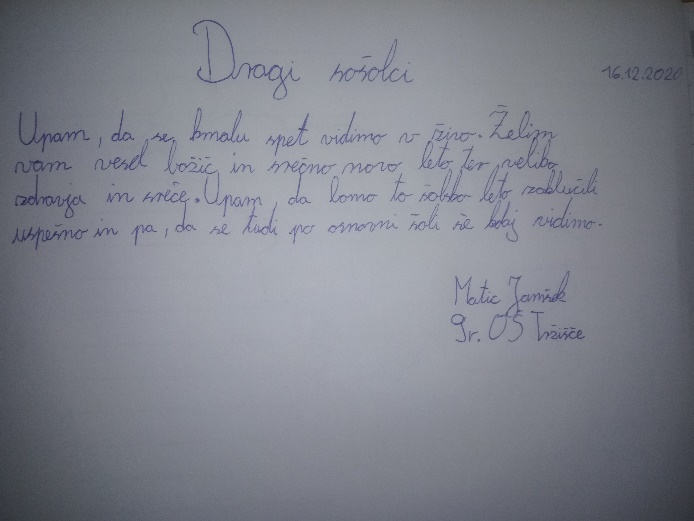 Dragi sošolci
16.12.2020
Upam, da se kmalu spet vidimo v živo. Želim
vam vesel božič in srečno novo leto ter veliko
zdravja in sreče. Upam, da bomo to šolsko leto zaključili
uspešno in pa, da se tudi po osnovni šoli še kdaj vidimo.
Matic Jamšek
9r. OŠ Tržišče